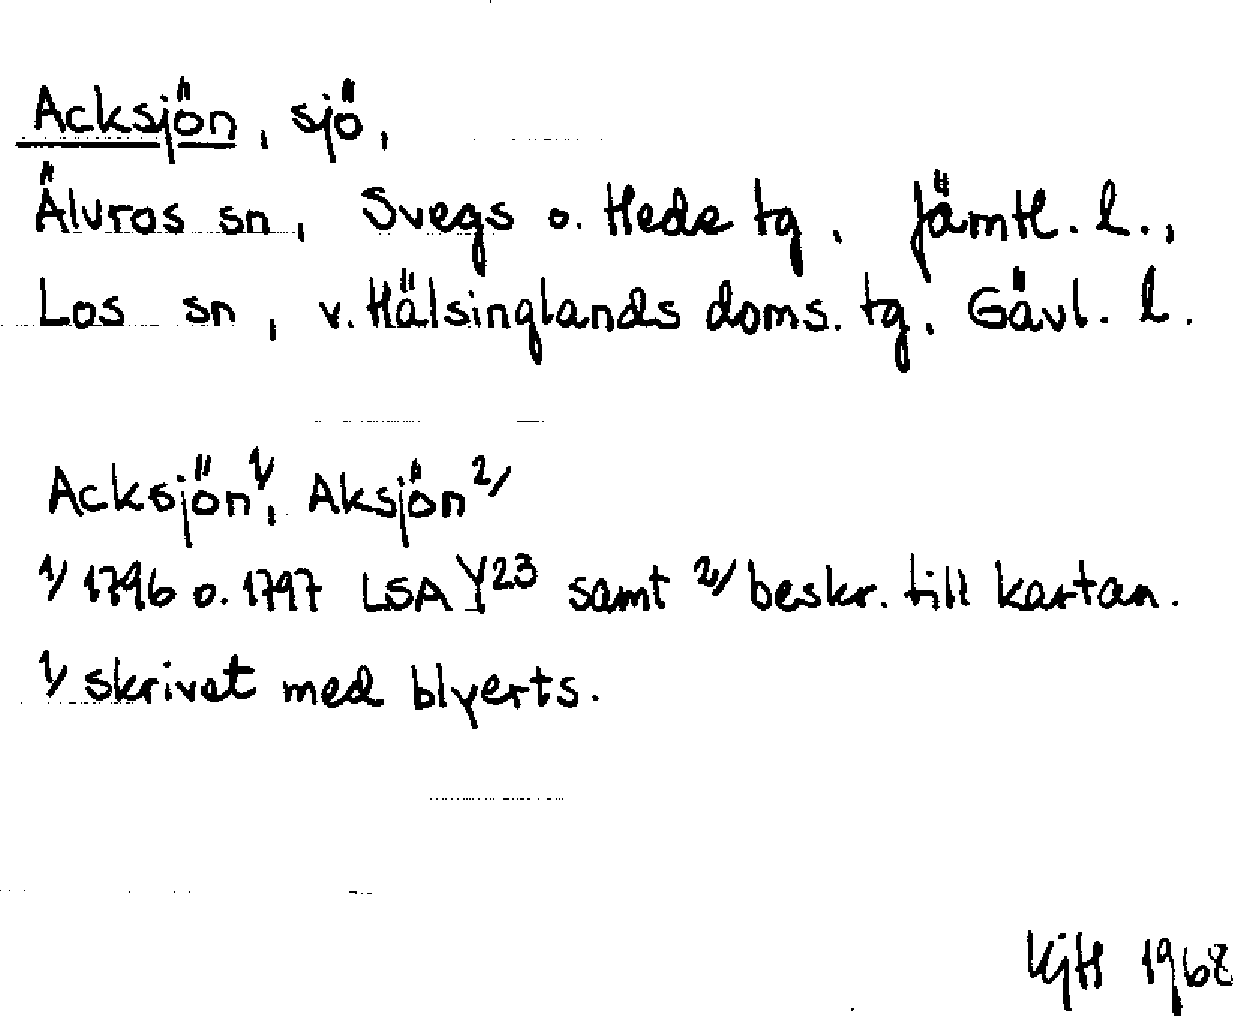 Acksjön, sjö,
Älvros sn, Svegs o. Hede tg, Jämtl. l.,
Los sn, v. Hälsinglands doms. tg, Gävl. l.
Acksjön 1/, Aksjön 2/
1/ 1796 o. 1797 LSA Y23 samt 2/ beskr. till kartan.
1/ skrivet med blyerts.
KjH 1968